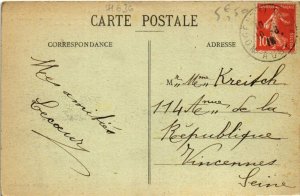 CARTE POSTALE
CORRESPONDANCE
ADRESSE
Mes amitiés
Lecoeur
Mr Mme Kreitch
114 Anue de la
République
Vincennes
Seine
10